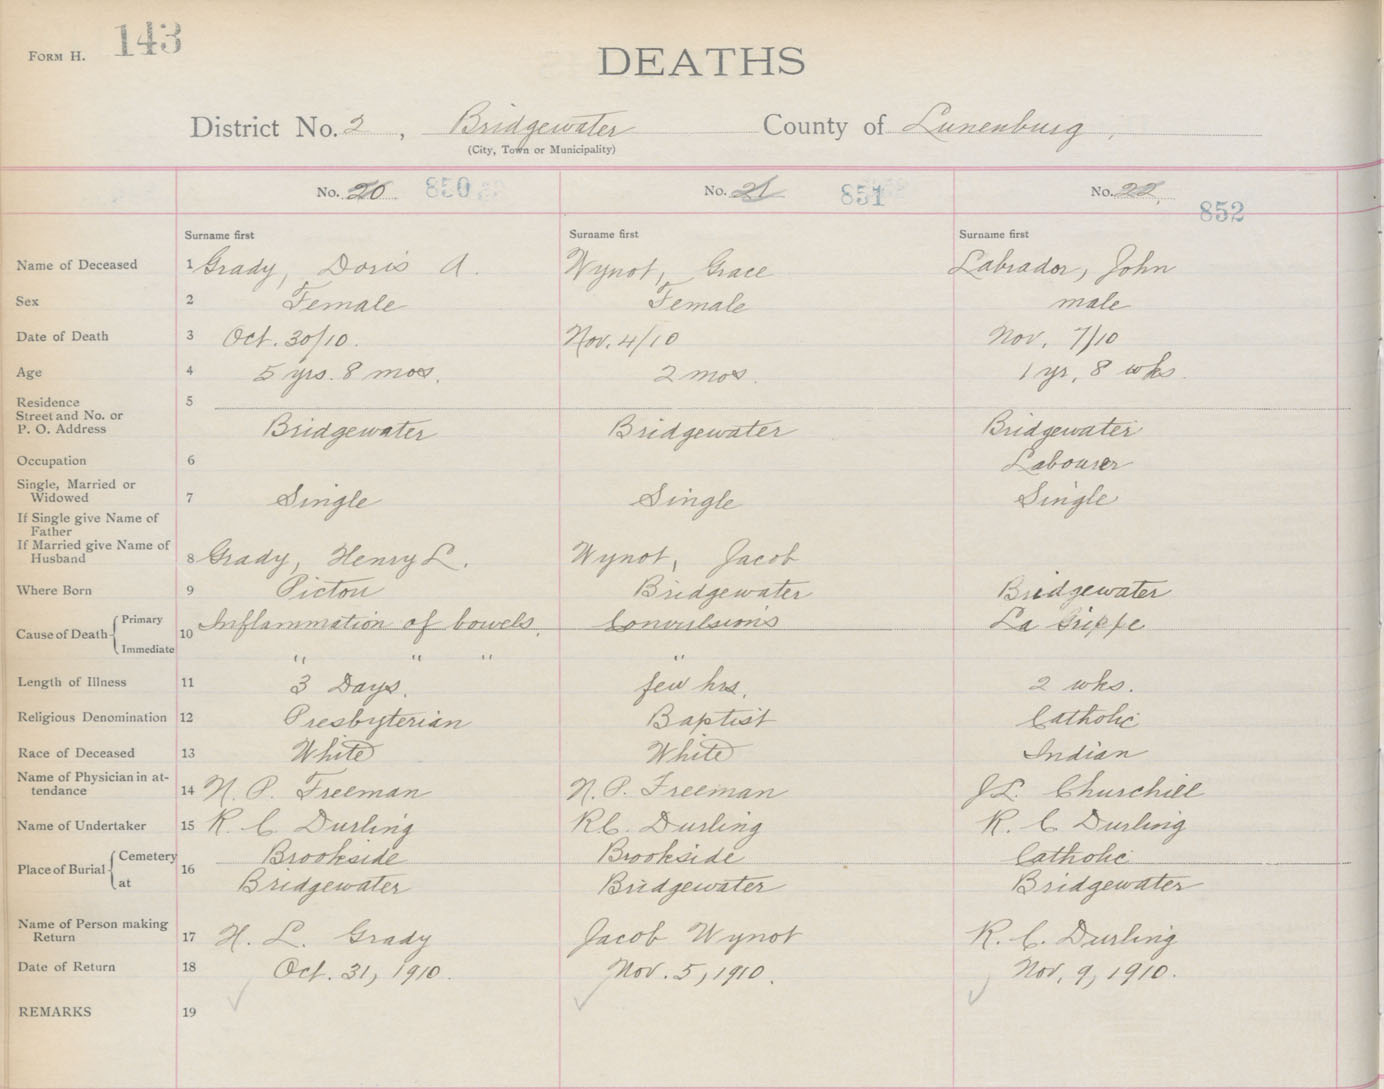 FORM H. 143
DEATHS
District No. 2, Bridgewater County of Lunenburg,
(City, Town or Municipality)
No. 20 850 No. 21 851 No. 22 852
Surname first Surname first Surname first
Name of Deceased 1 Grady, Doris A. Wynot, Grace Labrador, John
Sex 2 Female Female male
Date of Death 3 Oct. 30/10. Nov. 4/10 Nov. 7/10
Age 4 5 yrs. 8 mos. 2 mos. 1 yr, 8 wks.
Residence 5
Street and No. or
P. O. Address Bridgewater Bridgewater Bridgewater
Occupation 6 Labourer
Single, Married or
Widowed 7 Single Single Single
If Single give Name of
Father
If Married give Name of
Husband 8 Grady, Henry L. Wynot, Jacob
Where Born 9 Pictou Bridgewater Bridgewater
Cause of Death Primary 10 Inflammation of bowels. Convulsions La Grippe
Immediate " " " "
Length of Illness 11 3 Days. few hrs. 2 wks.
Religious Denomination 12 Presbyterian Baptist Catholic
Race of Deceased 13 White White Indian
Name of Physician in at-
tendance 14 N. P. Freeman N. P. Freeman J L. Churchill
Name of Undertaker 15 R. C Durling R C. Durling R. C Durling
Place of Burial Cemetery 16 Brookside Brookside Catholic
at Bridgewater Bridgewater Bridgewater
Name of Person making
Return 17 H. L. Grady Jacob Wynot R. C. Durling
Date of Return 18 Oct. 31, 1910. Nov. 5, 1910. Nov. 9, 1910.
REMARKS 19